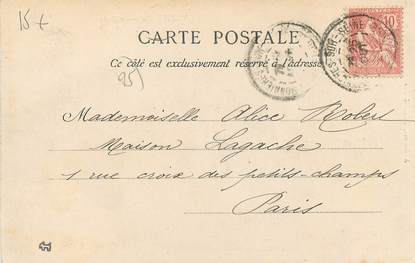 15 t
CARTE POSTALE
Ce côté est exclusivement réservé à l'adresse
95)
10
SUR-SEINE
Mademoiselle Alice Robert
Maison Lagache
1 rue croix des petits-champs
Paris